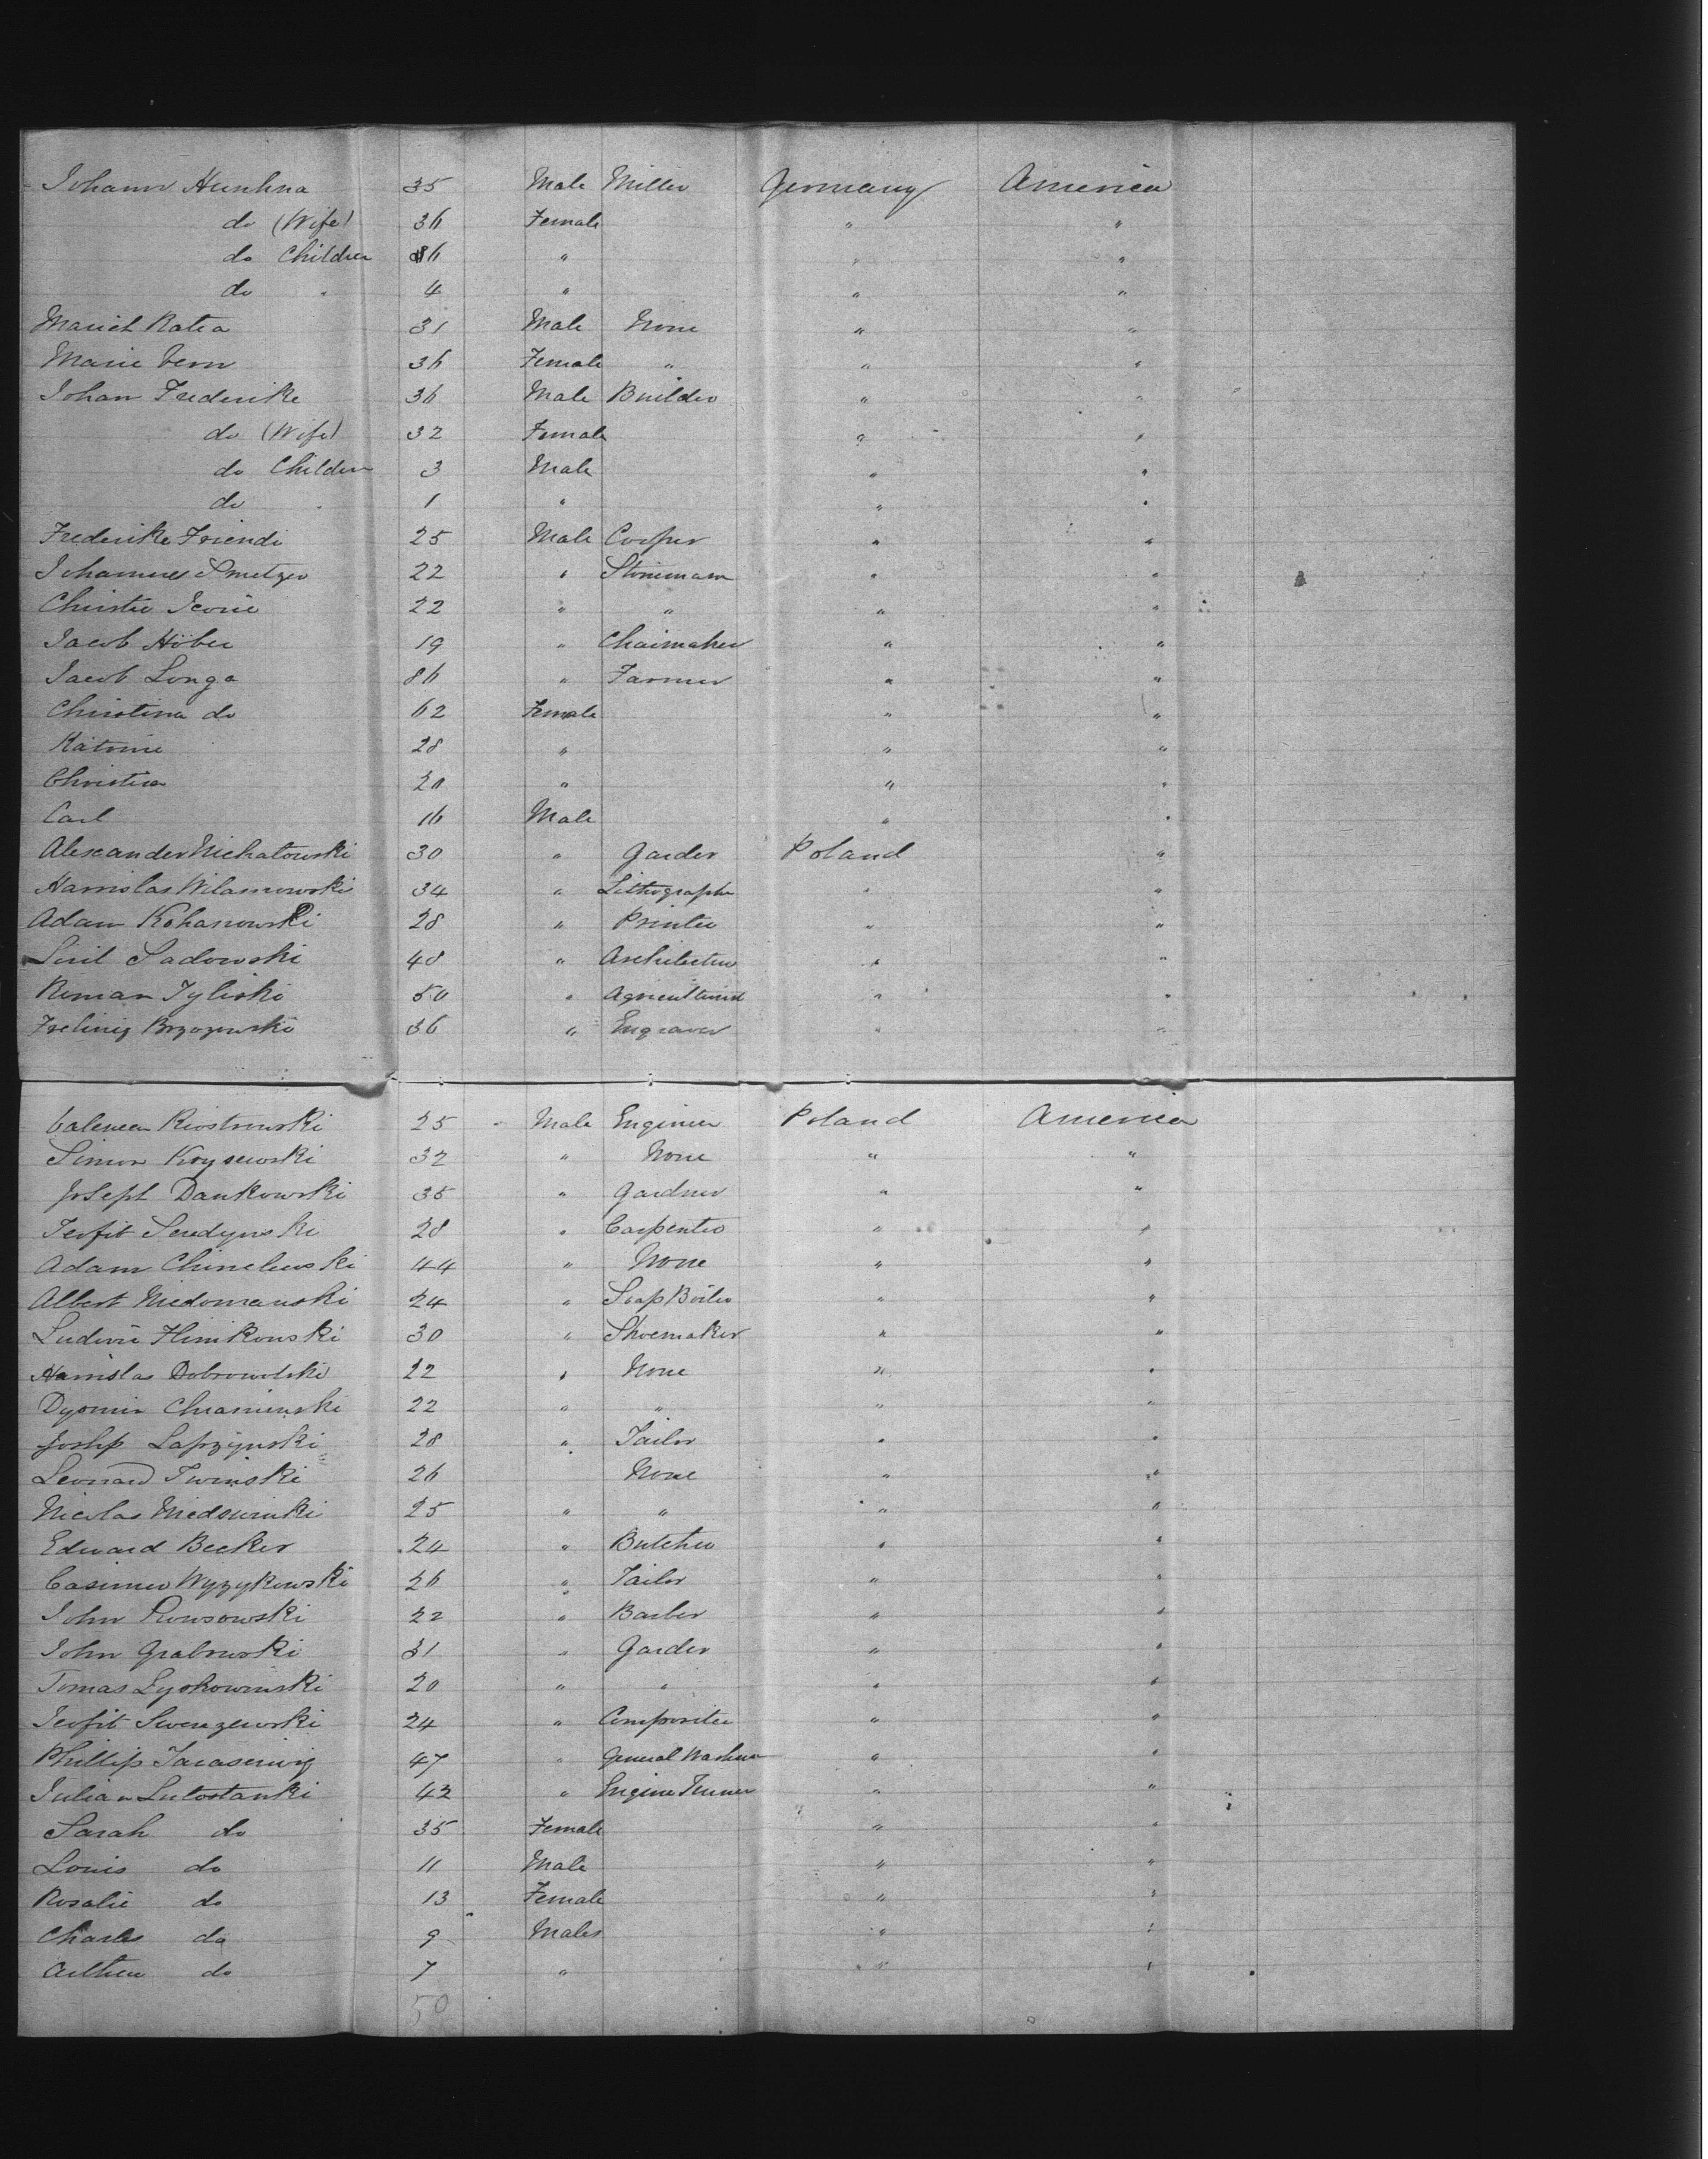 Johann Hunhna 35 Male Miller Germany America
do (Wife) 36 Female " "
do Children 6 " " "
do " 4 " " "
Mariet Ratea 31 Male None " "
Marie Vern 36 Female " " "
Johan Frederike 36 Male Builder " "
do (Wife) 32 Female " "
do Children 3 Male " "
do 1 " " "
Frederike Friendi 25 Male Cooper " "
Johannes Smetzer 22 " Stoneman " "
Christie 22 " " " "
Jacob Höber 19 " Chairmaker " "
Jacob Longa 86 " Farmer " "
Christina do 62 Female " "
Katrine 28 " " "
Christien 20 " " "
Carl 16 Male " "
Alexander Michalowski 30 " Garder Poland "
Stanislas Wilamowski 34 " Lithograph " "
Adam Kohanowski 28 " Printer " "
Sadowski 48 " Architecter " "
Roman Tyliski 50 " Agriculturist " "
Brzozowski 36 " Engraver " "
Riostrowski 25 Male Engineer Poland America
Simon Krysewski 32 " None " "
Joseph Dankowski 35 " Gardner " "
Teofit Seredynski 28 " Carpenter " "
Adam Chinelewski 44 " None " "
Albert Niedomanski 24 " Soap Boiler " "
Ludwic Hinikowski 30 " Shoemaker " "
Stanislas Dobrowolski 22 " None " "
Dyomin Chraminski 22 " " " "
Joshp Lapzynski 28 " Tailor " "
Leonard Twinski 26 None " "
Nicolas Miedswinki 25 " " " "
Edward Becker 24 " Butcher " "
Casimer Wyzykowski 26 " Tailor " "
John Rowsowski 22 " Barber " "
John Grabowski 31 " Garder " "
Tomas Lyskowinski 20 " " " "
Teofit Swenzewski 24 " Compositer " "
Phillip Jarasewig 47 " General Washman " "
Julian Lutostanki 42 " Engine Turner " "
Sarah do 35 Female " "
Louis do 11 Male " "
Rosalie do 13 Female " "
Charles do 9 Males " "
Arthur do 7 " " "
50